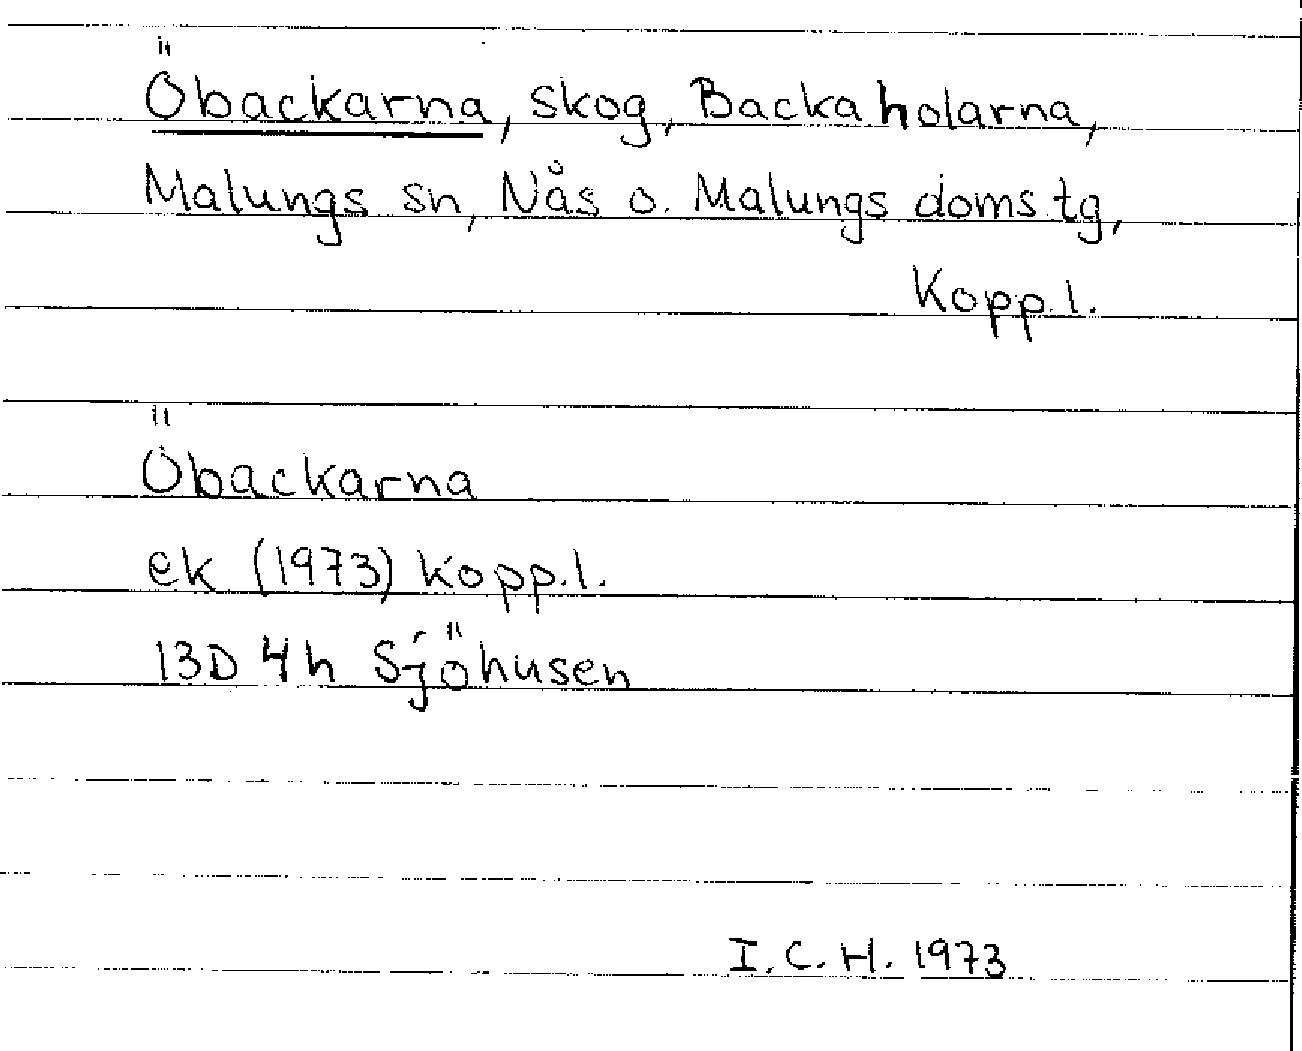 Öbackarna, skog, Backaholarna,
Malungs sn, Nås o. Malungs doms.tg,
Kopp.l.
Öbackarna
ek (1973) Kopp.l.
13D 4h Sjöhusen
I.C.H. 1973